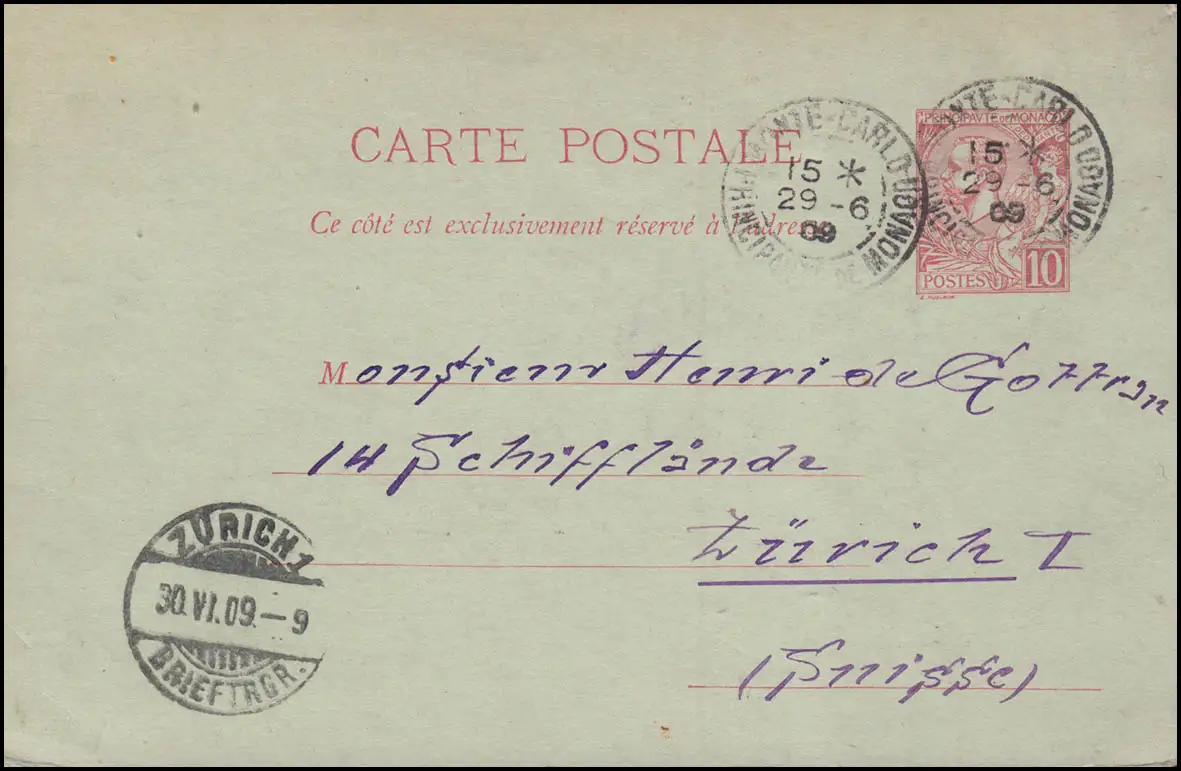 CARTE POSTALE
Ce côté est exclusivement réservé à l'adresse
PRINCIPAVTE DE MONACO
POSTES 10
MONTE-CARLO
15 *
29 - 6
09
PRINCIPAUTÉ DE MONACO
MONTE-CARLO
15 *
29 - 6
09
MONACO
Monsieur Henri de Gottrau
14 Schifflände
Zürich I
(Suisse)
ZÜRICH 1
30.VI.09.—9
BRIEFTRGR.